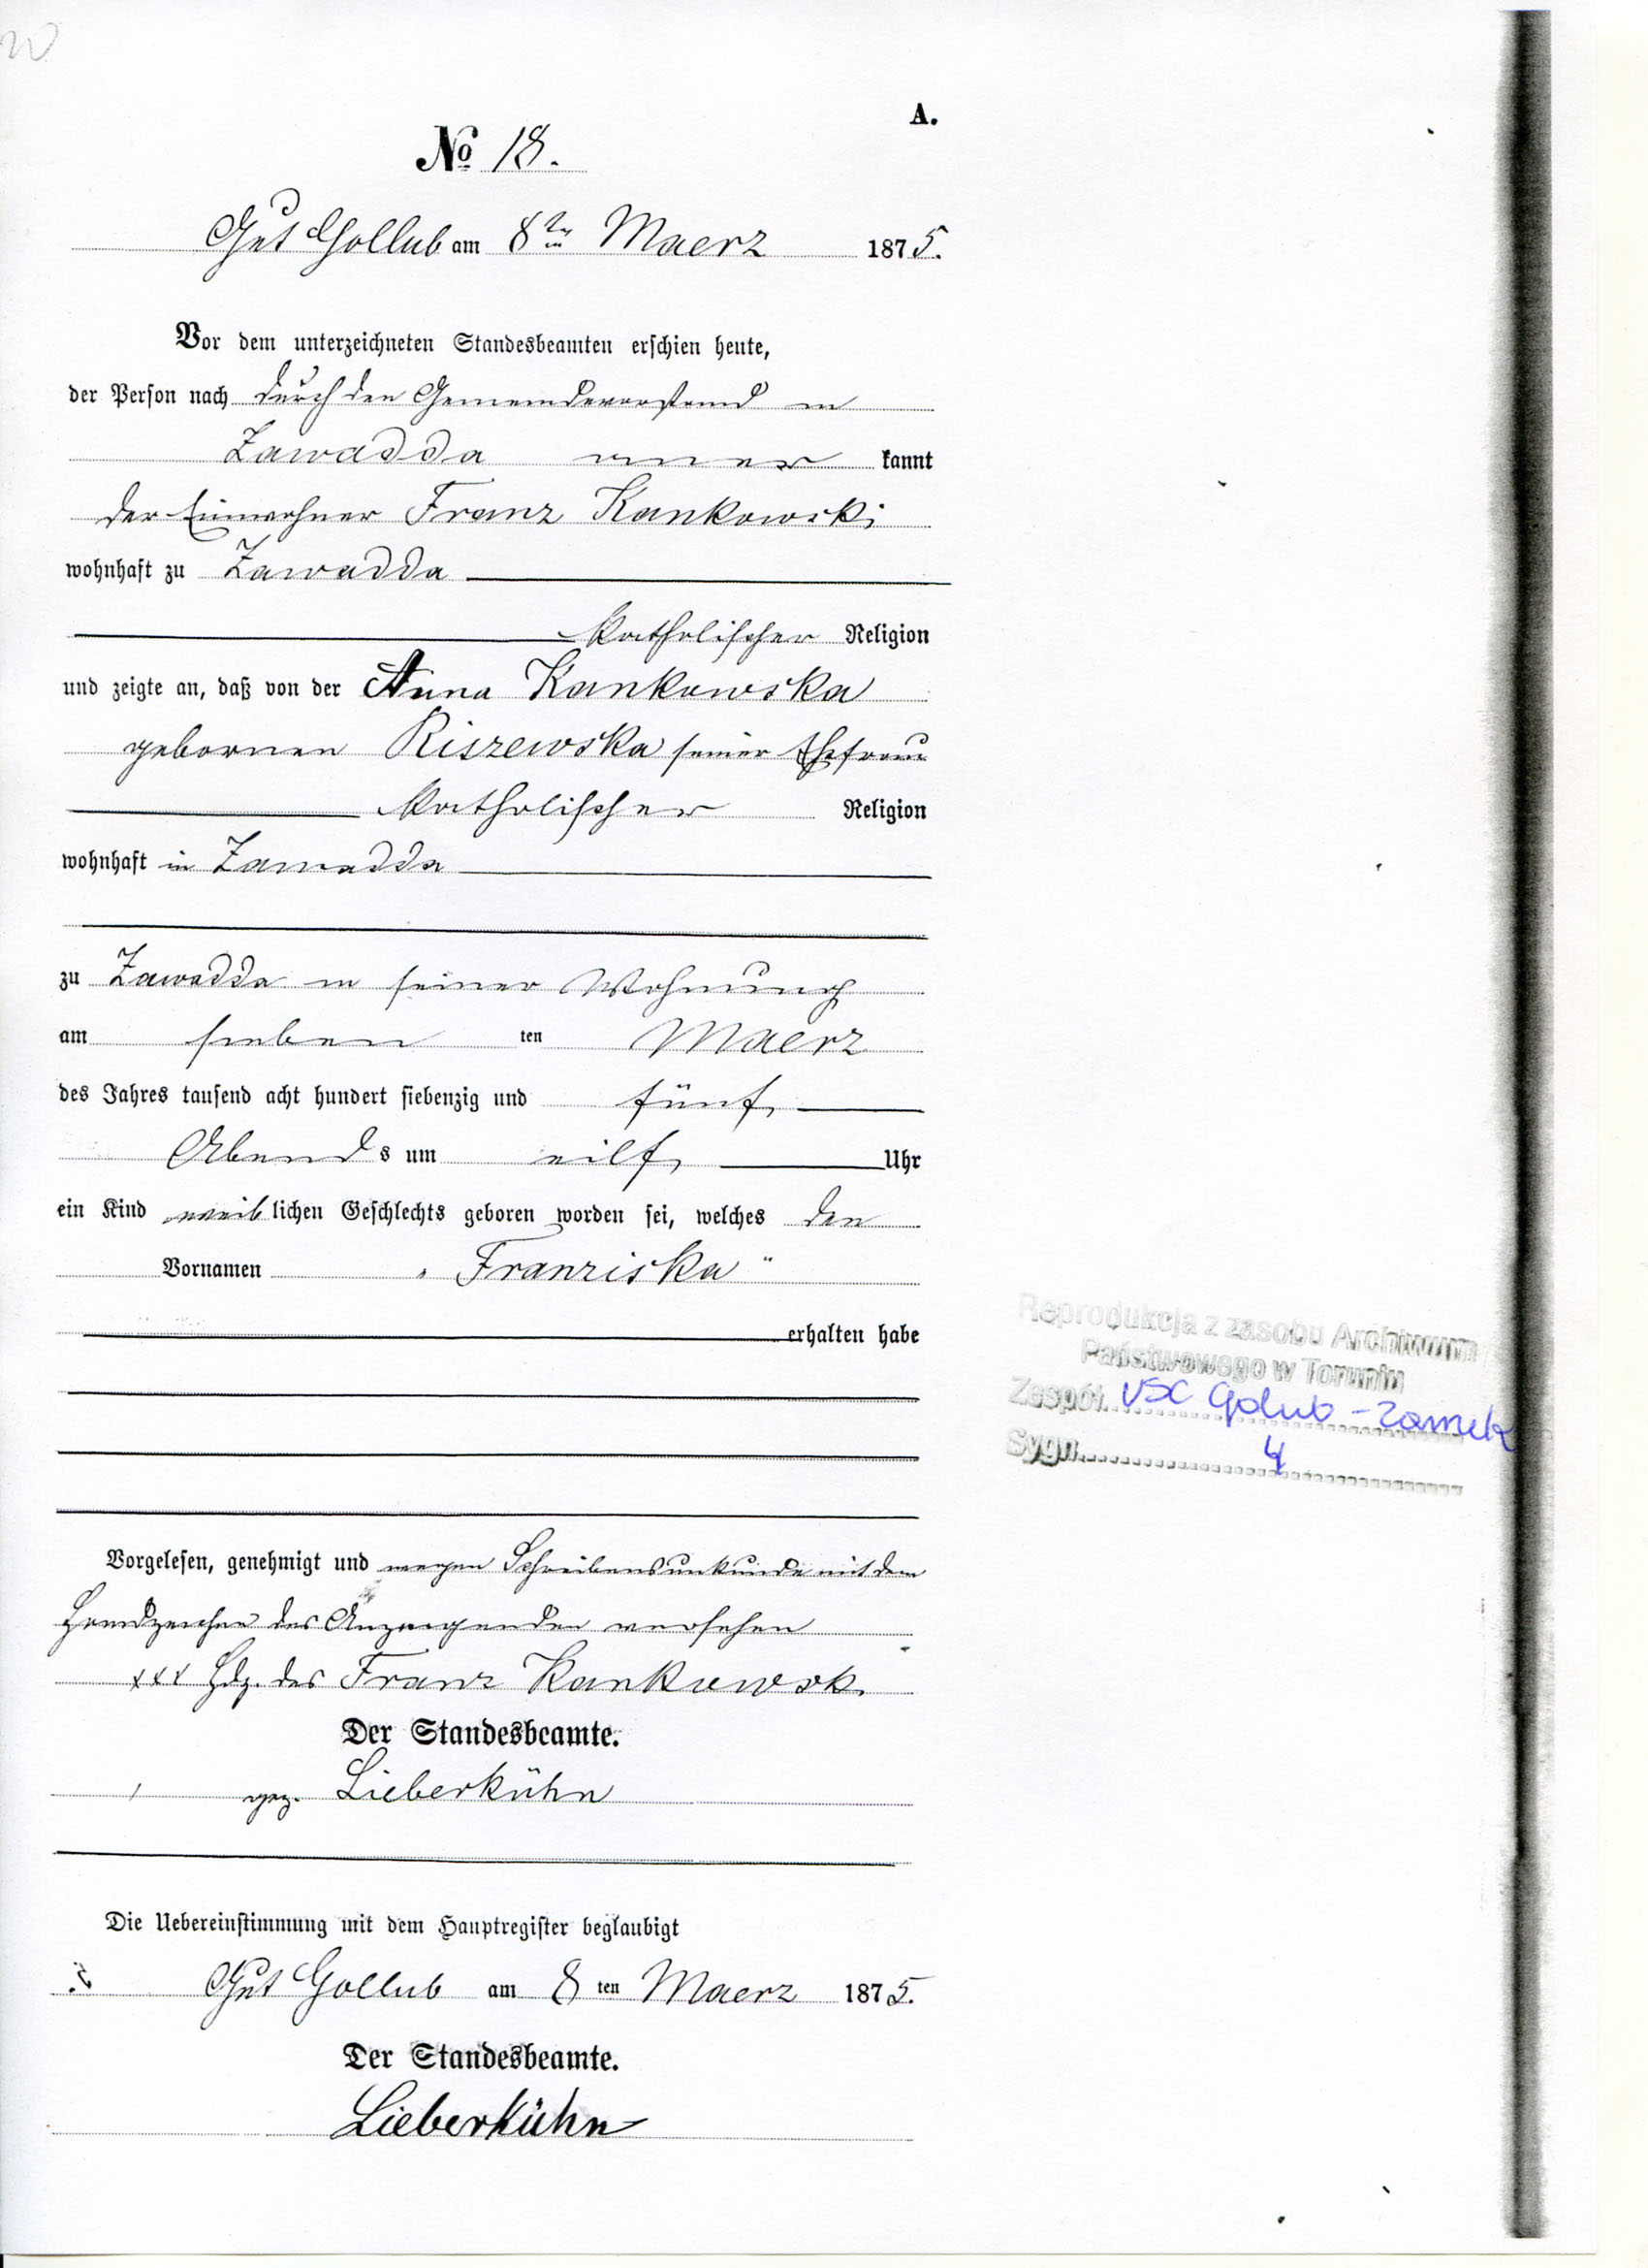 A.
No 18.
Gut Gollub am 8ten Maerz 1875.
Vor dem unterzeichneten Standesbeamten erschien heute,
der Person nach durch den Gemeindevorstand in
Zawadda aner kannt
der Einwohner Franz Kankowski
wohnhaft zu Zawadda
katholischer Religion
und zeigte an, daß von der Anna Kankowska
gebornen Riszewska seiner Ehefrau
katholischer Religion
wohnhaft in Zawadda
zu Zawadda in seiner Wohnung
am sieben ten Maerz
des Jahres tausend acht hundert siebenzig und fünf,
Abends um eilf, Uhr
ein Kind weiblichen Geschlechts geboren worden sei, welches den
Vornamen „Franziska“
erhalten habe
Vorgelesen, genehmigt und wegen Schreibensunkunde mit dem
Handzeichen des Anzeigenden versehen
xxx Hdz. des Franz Kankowski
Der Standesbeamte.
gez. Lieberkühn
Die Uebereinstimmung mit dem Hauptregister beglaubigt
Gut Gollub am 8 ten Maerz 1875.
Der Standesbeamte.
Lieberkühn
Reprodukcja z zasobu Archiwum
Państwowego w Toruniu
Zespół USC Golub-Zamek
Sygn. 4